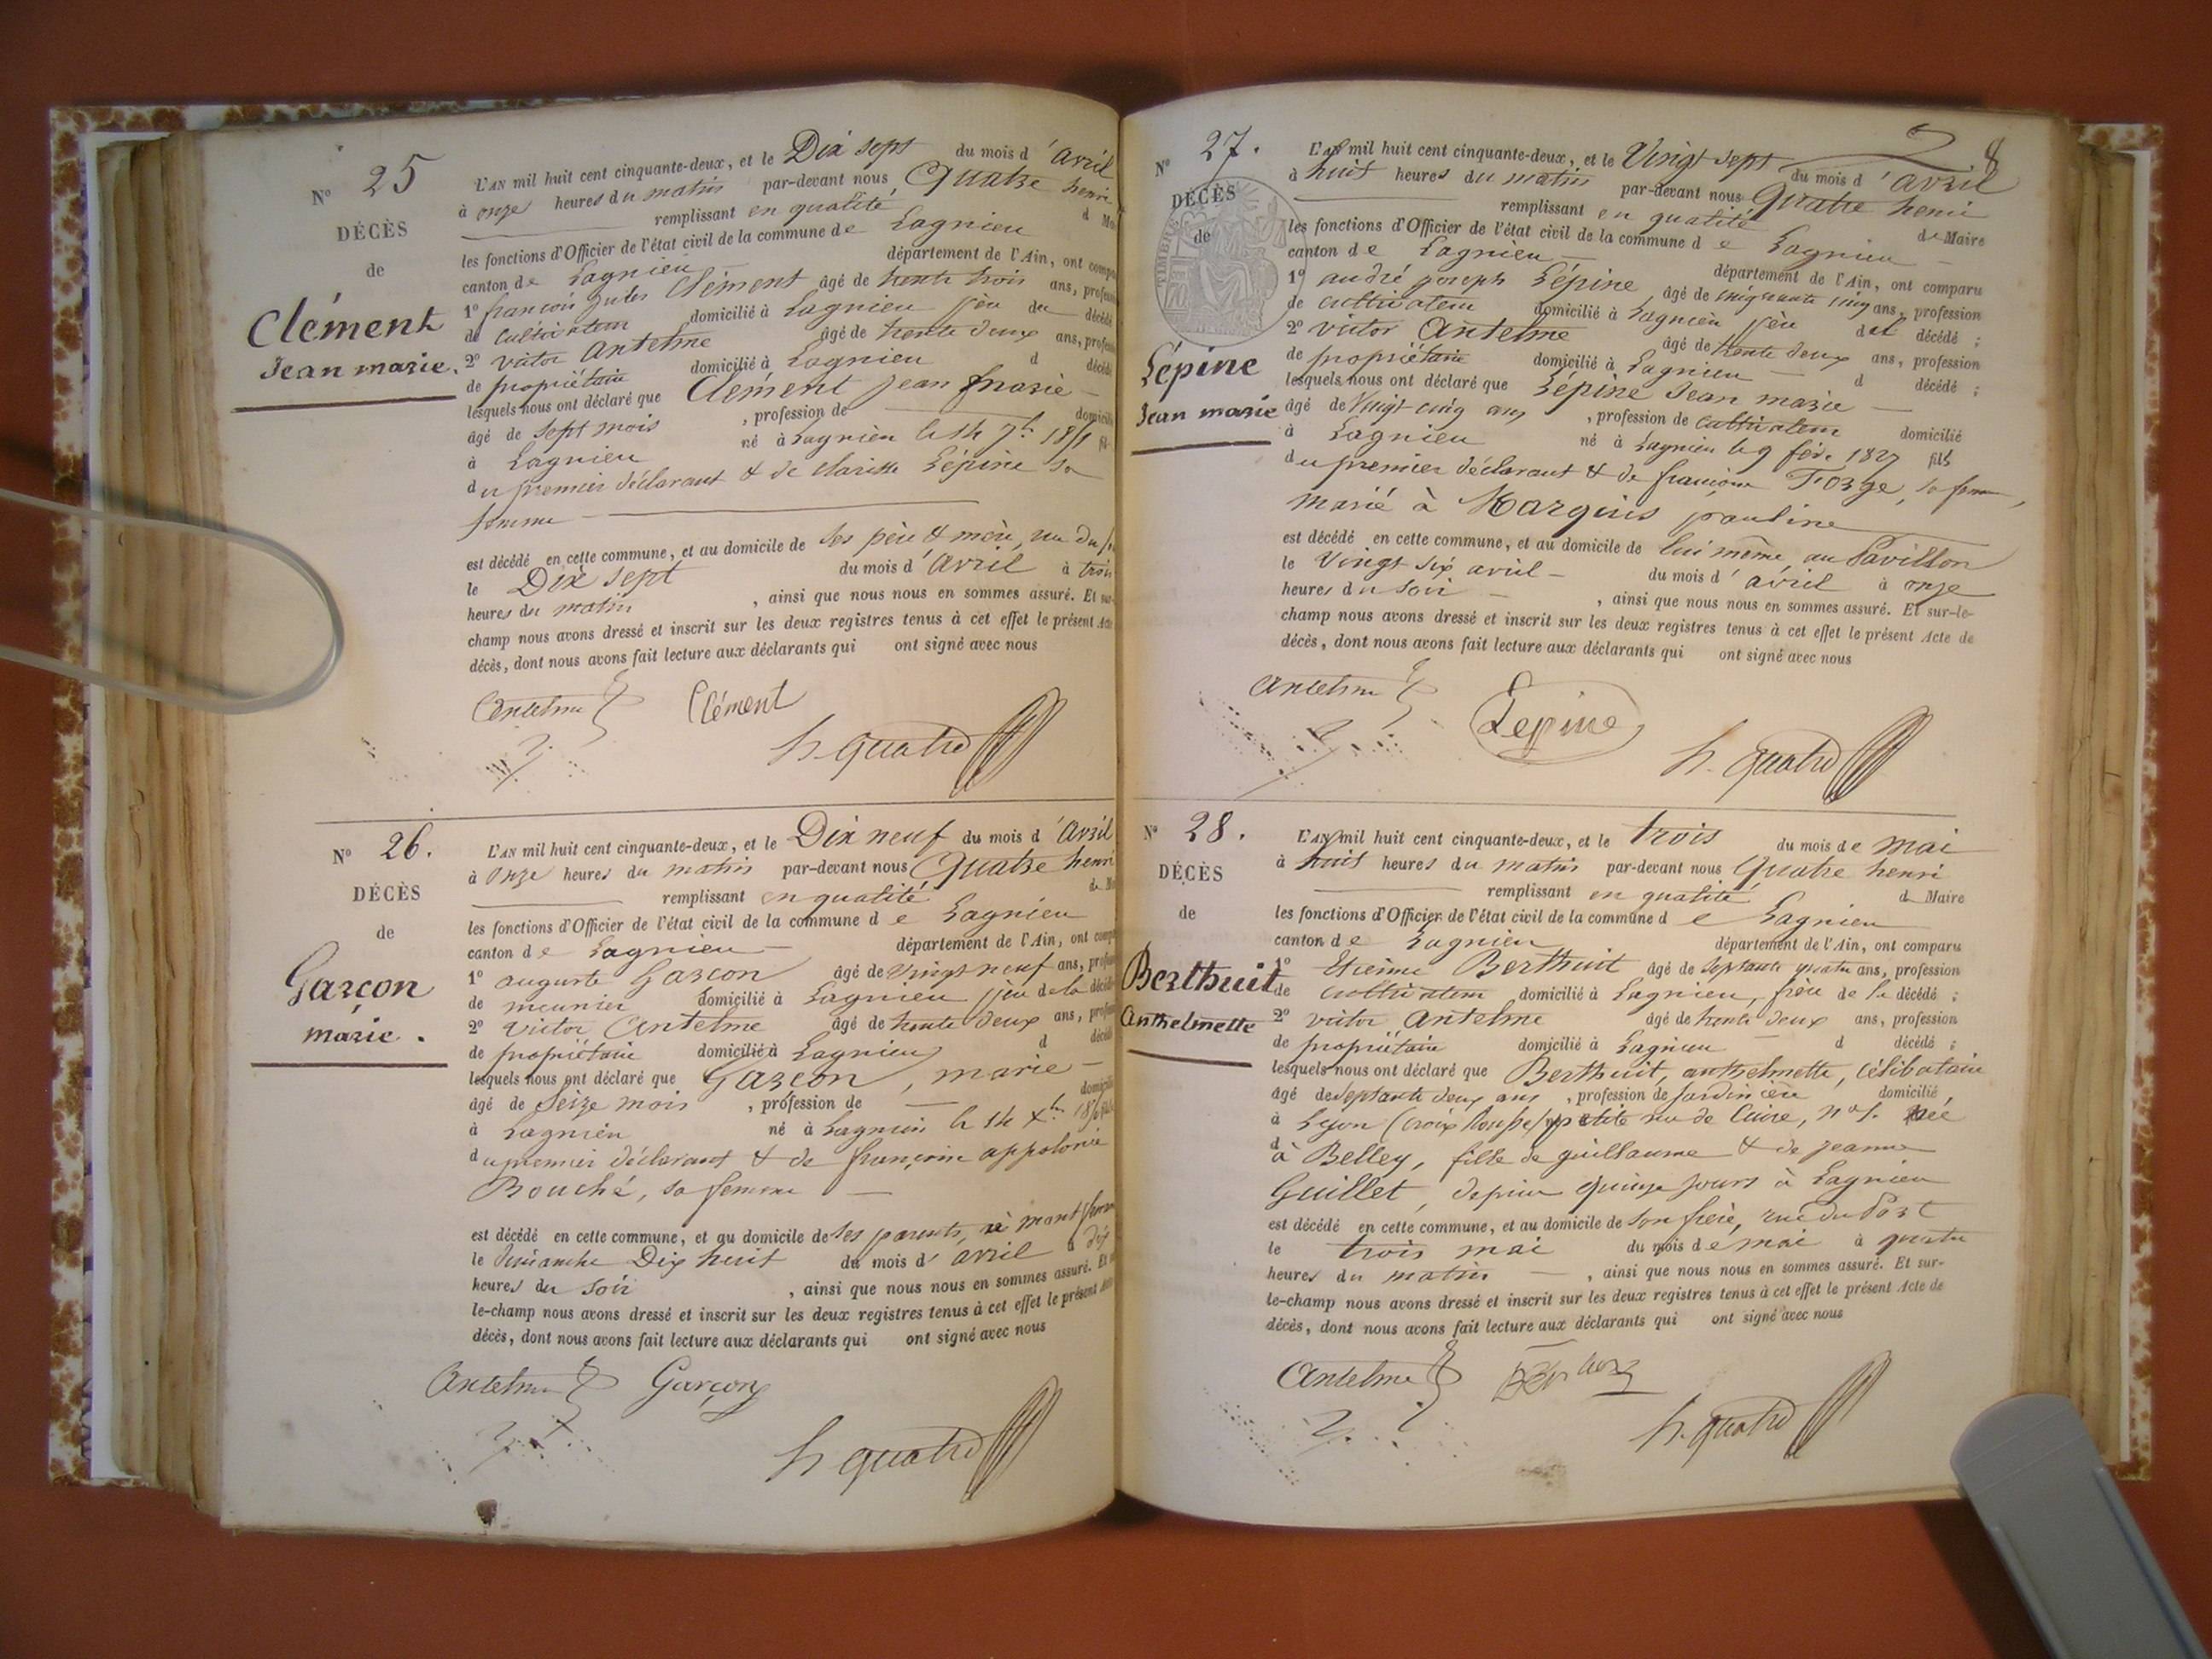 N° 25
DÉCÈS
de
Clément
Jean marie.
L'AN mil huit cent cinquante-deux, et le Dix sept du mois d'avril
à onze heures du matin par-devant nous Quatre henri
remplissant en qualité d
les fonctions d'Officier de l'état civil de la commune de Lagnieu
canton de Lagnieu département de l'Ain, ont
1° françois Clément âgé de trente trois ans,
de cultivateur domicilié à Lagnieu père du décédé
2° victor Antelme âgé de trente deux ans,
de propriétaire domicilié à Lagnieu d
lesquels nous ont déclaré que Clément Jean Marie
âgé de sept mois , profession de
à Lagnieu né à Lagnieu le 14 7b
du premier déclarant & de clarisse Lépine sa
femme
est décédé en cette commune, et au domicile de ses père & mère, rue du
le Dix sept du mois d'Avril à trois
heures du matin , ainsi que nous nous en sommes assuré. Et sur-
champ nous avons dressé et inscrit sur les deux registres tenus à cet effet le présent Acte
décès, dont nous avons fait lecture aux déclarants qui ont signé avec nous
Antelme Clément
h. quatre
N° 26.
DÉCÈS
de
Garçon
marie.
L'AN mil huit cent cinquante-deux, et le Dix neuf du mois d'Avril
à onze heures du matin par-devant nous Quatre henri
remplissant en qualité de
les fonctions d'Officier de l'état civil de la commune de Lagnieu
canton de Lagnieu département de l'Ain, ont
1° auguste Garçon âgé de vingt neuf ans,
de meunier domicilié à Lagnieu père de la
2° victor Antelme âgé de trente deux ans,
de propriétaire domicilié à Lagnieu d
lesquels nous ont déclaré que Garçon, marie
âgé de Seize mois , profession de
à Lagnieu né à Lagnieu le 14 xbre
du premier déclarant & de françoise appolonie
Bouché, sa femme
est décédé en cette commune, et au domicile de ses parents, à
le dimanche Dix huit du mois d'avril à dix
heures du soir , ainsi que nous nous en sommes assuré. Et
le-champ nous avons dressé et inscrit sur les deux registres tenus à cet effet le présent
décès, dont nous avons fait lecture aux déclarants qui ont signé avec nous
Antelme Garçon
h quatre
8
N° 27.
DÉCÈS
de
TIMBRE
Lépine
Jean marie
L'AN mil huit cent cinquante-deux, et le Vingt sept du mois d'avril
à huit heures du matin par-devant nous Quatre henri
remplissant en qualité de Maire
les fonctions d'Officier de l'état civil de la commune de Lagnieu
canton de Lagnieu département de l'Ain, ont comparu
1° andré joseph Lépine âgé de cinquante cinq ans, profession
de cultivateur domicilié à Lagnieu père du décédé ;
2° victor Antelme âgé de trente deux ans, profession
de propriétaire domicilié à Lagnieu d décédé ;
lesquels nous ont déclaré que Lépine Jean marie
âgé de Vingt cinq ans , profession de cultivateur domicilié
à Lagnieu né à Lagnieu le 9 fév. 1827 fils
du premier déclarant & de françoise Forge, sa femme,
marié à Marquis pauline
est décédé en cette commune, et au domicile de lui même, au Pavillon
le Vingt six avril du mois d'avril à onze
heures du soir , ainsi que nous nous en sommes assuré. Et sur-le-
champ nous avons dressé et inscrit sur les deux registres tenus à cet effet le présent Acte de
décès, dont nous avons fait lecture aux déclarants qui ont signé avec nous
Antelme Lepine
h. quatre
N° 28.
DÉCÈS
de
Berthuit
Anthelmette
L'AN mil huit cent cinquante-deux, et le trois du mois de mai
à huit heures du matin par-devant nous Quatre henri
remplissant en qualité de Maire
les fonctions d'Officier de l'état civil de la commune de Lagnieu
canton de Lagnieu département de l'Ain, ont comparu
1° Etienne Berthuit âgé de septante quatre ans, profession
de cultivateur domicilié à Lagnieu, frère de la décédé ;
2° victor Antelme âgé de trente deux ans, profession
de propriétaire domicilié à Lagnieu d décédé ;
lesquels nous ont déclaré que Berthuit, anthelmette, célibataire
âgé de septante deux ans , profession de jardinière domicilié
à Lyon (croix rousse) petite rue de Cuire, n° née
d à Belley, fille de guillaume & de jeanne
Guillet, depuis quinze jours à Lagnieu
est décédé en cette commune, et au domicile de son frère, rue du Port
le trois mai du mois de mai à quatre
heures du matin , ainsi que nous nous en sommes assuré. Et sur-
le-champ nous avons dressé et inscrit sur les deux registres tenus à cet effet le présent Acte de
décès, dont nous avons fait lecture aux déclarants qui ont signé avec nous
Antelme
h. quatre